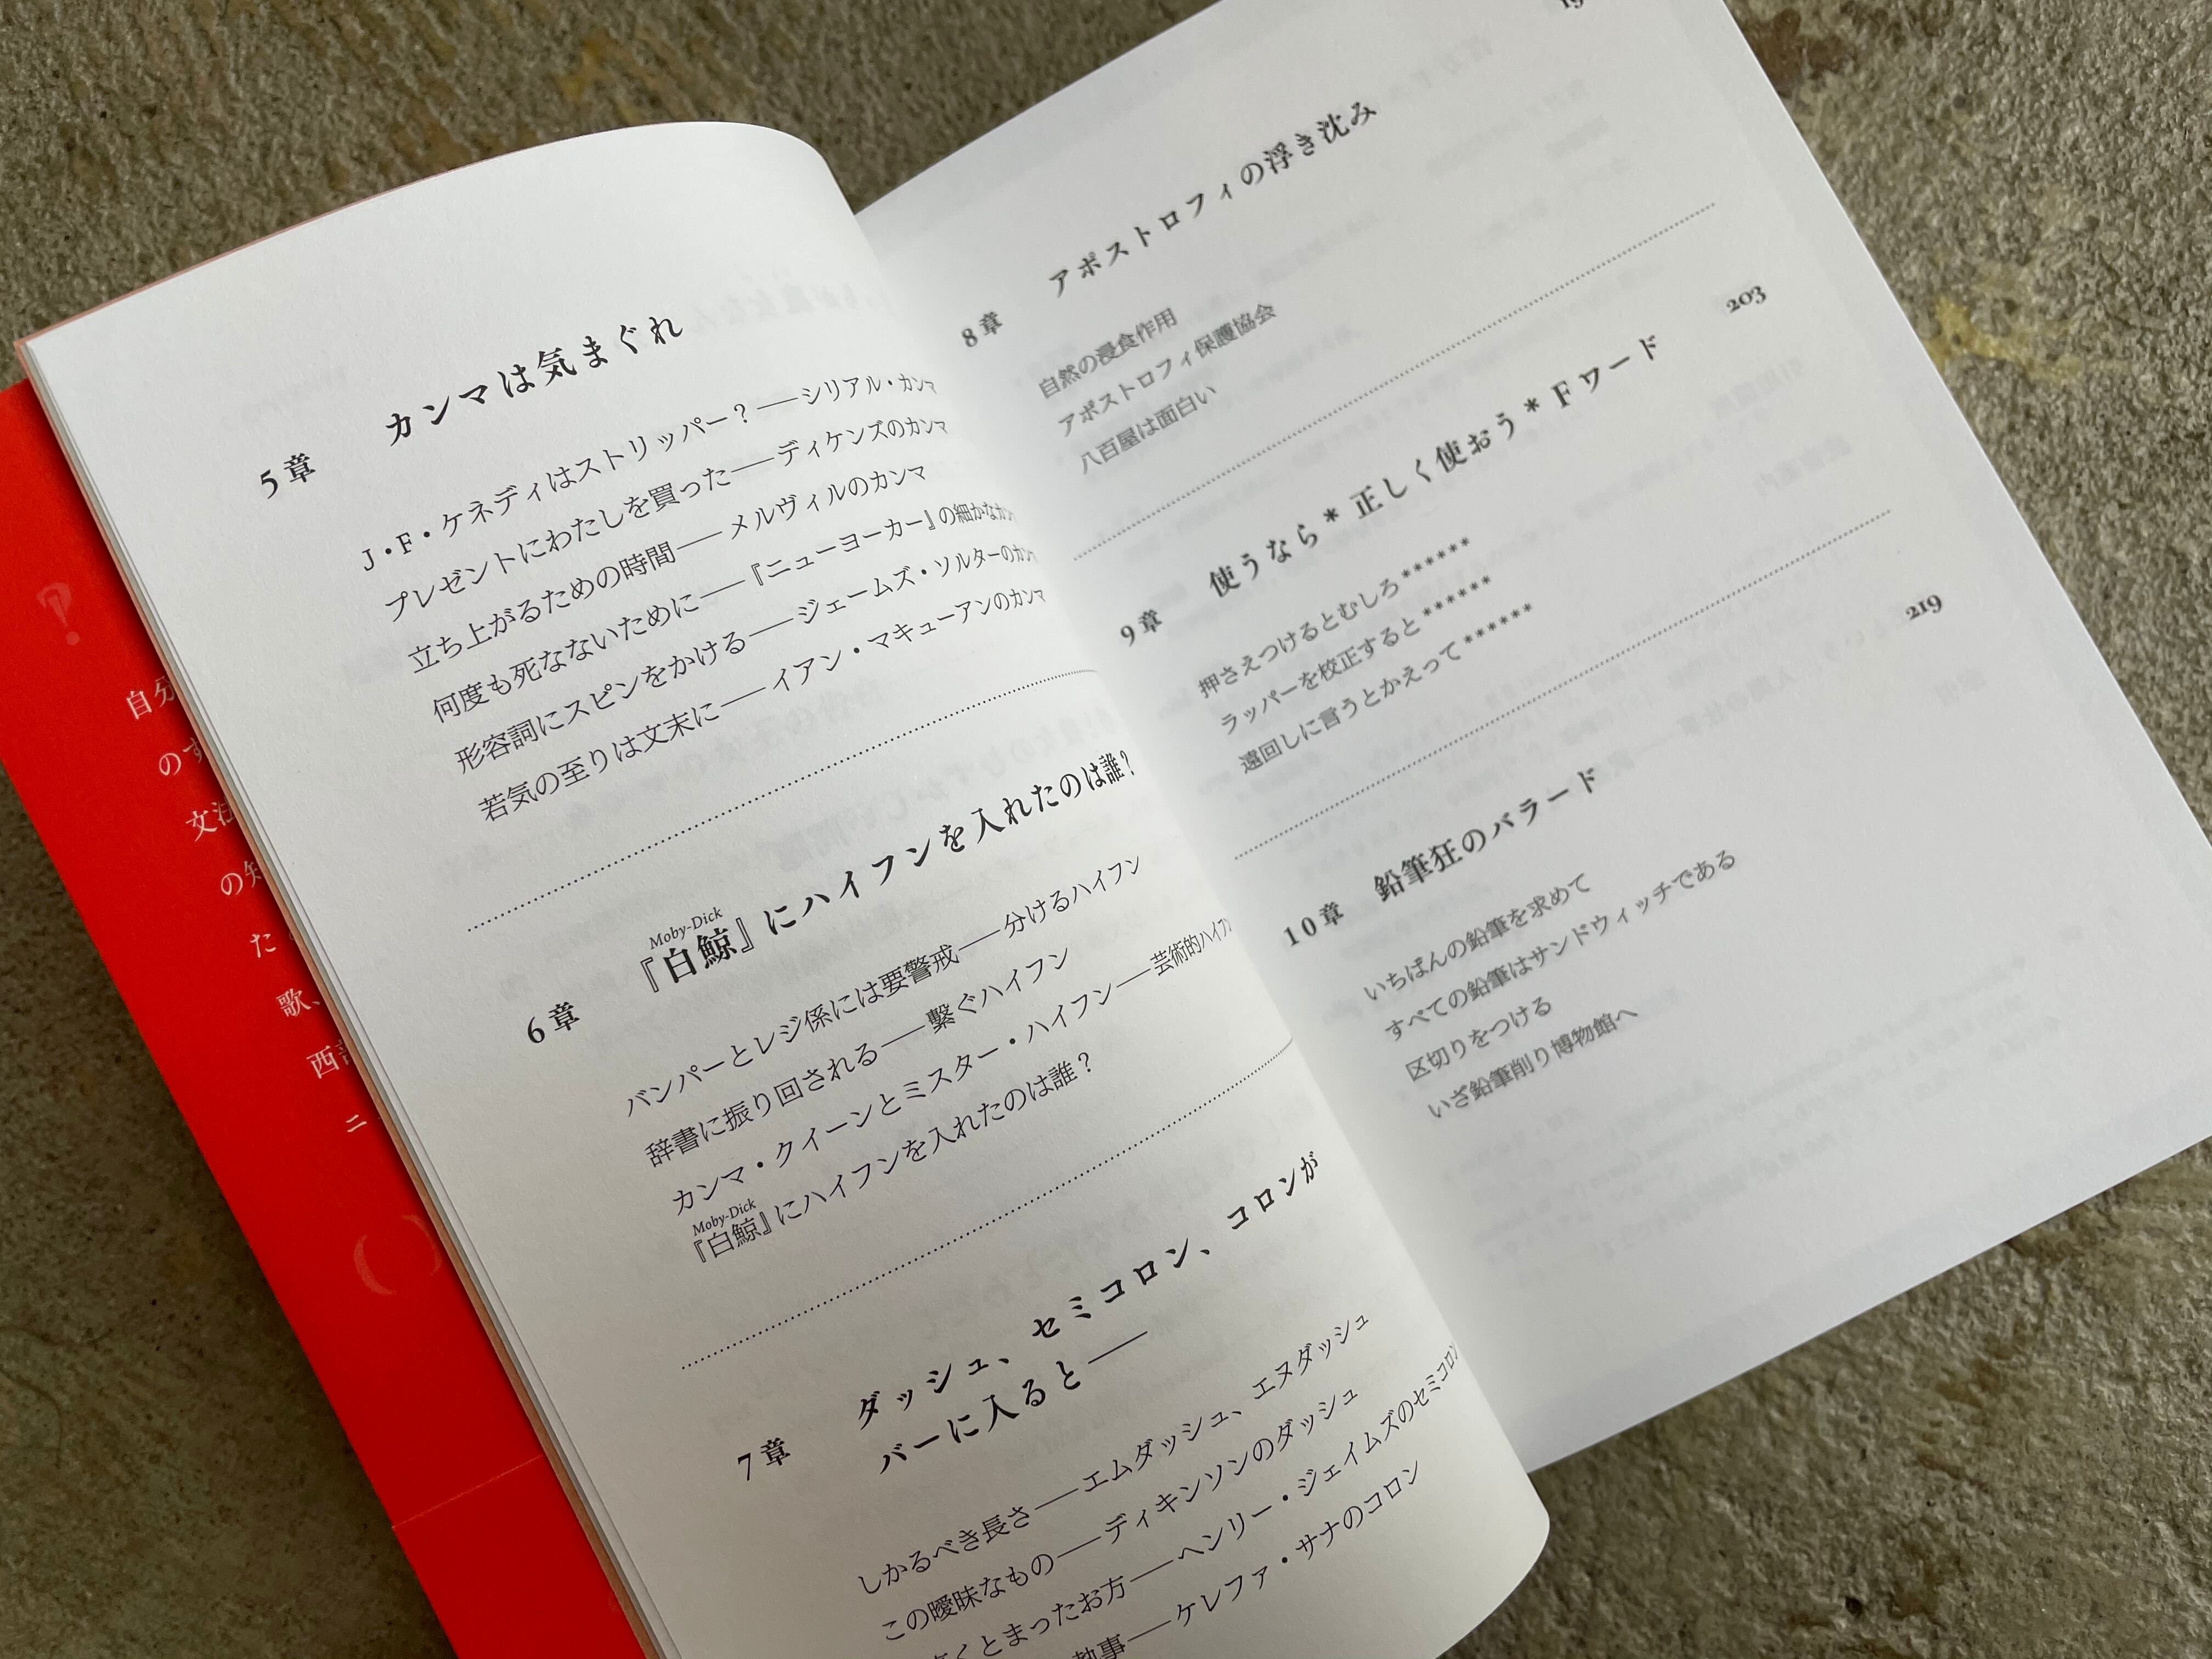 5章 カンマは気まぐれ
J・F・ケネディはストリッパー？──シリアル・カンマ
プレゼントにわたしを買った──ディケンズのカンマ
立ち上がるための時間──メルヴィルのカンマ
何度も死なないために──『ニューヨーカー』の細かなカン
形容詞にスピンをかける──ジェームズ・ソルターのカン
若気の至りは文末に──イアン・マキューアンのカンマ
Moby-Dick
6章 『白鯨』にハイフンを入れたのは誰？
バンパーとレジ係には要警戒──分けるハイフン
辞書に振り回される──繋ぐハイフン
カンマ・クイーンとミスター・ハイフン──芸術的ハイフ
Moby-Dick
『白鯨』にハイフンを入れたのは誰？
7章 ダッシュ、セミコロン、コロンが
バーに入ると──
しかるべき長さ──エムダッシュ、エヌダッシュ
この曖昧なもの──ディキンソンのダッシュ
くとまったお方──ヘンリー・ジェイムズのセミコロン
執事──ケレファ・サナのコロン
8章 アポストロフィの浮き沈み
自然の浸食作用
アポストロフィ保護協会
八百屋は面白い
203
9章 使うなら＊正しく使おう＊Fワード
押さえつけるとむしろ******
ラッパーを校正すると******
遠回しに言うとかえって******
219
10章 鉛筆狂のバラード
いちばんの鉛筆を求めて
すべての鉛筆はサンドウィッチである
区切りをつける
いざ鉛筆削り博物館へ
自分
のす
文法
の知
た
歌、
西部
ニ